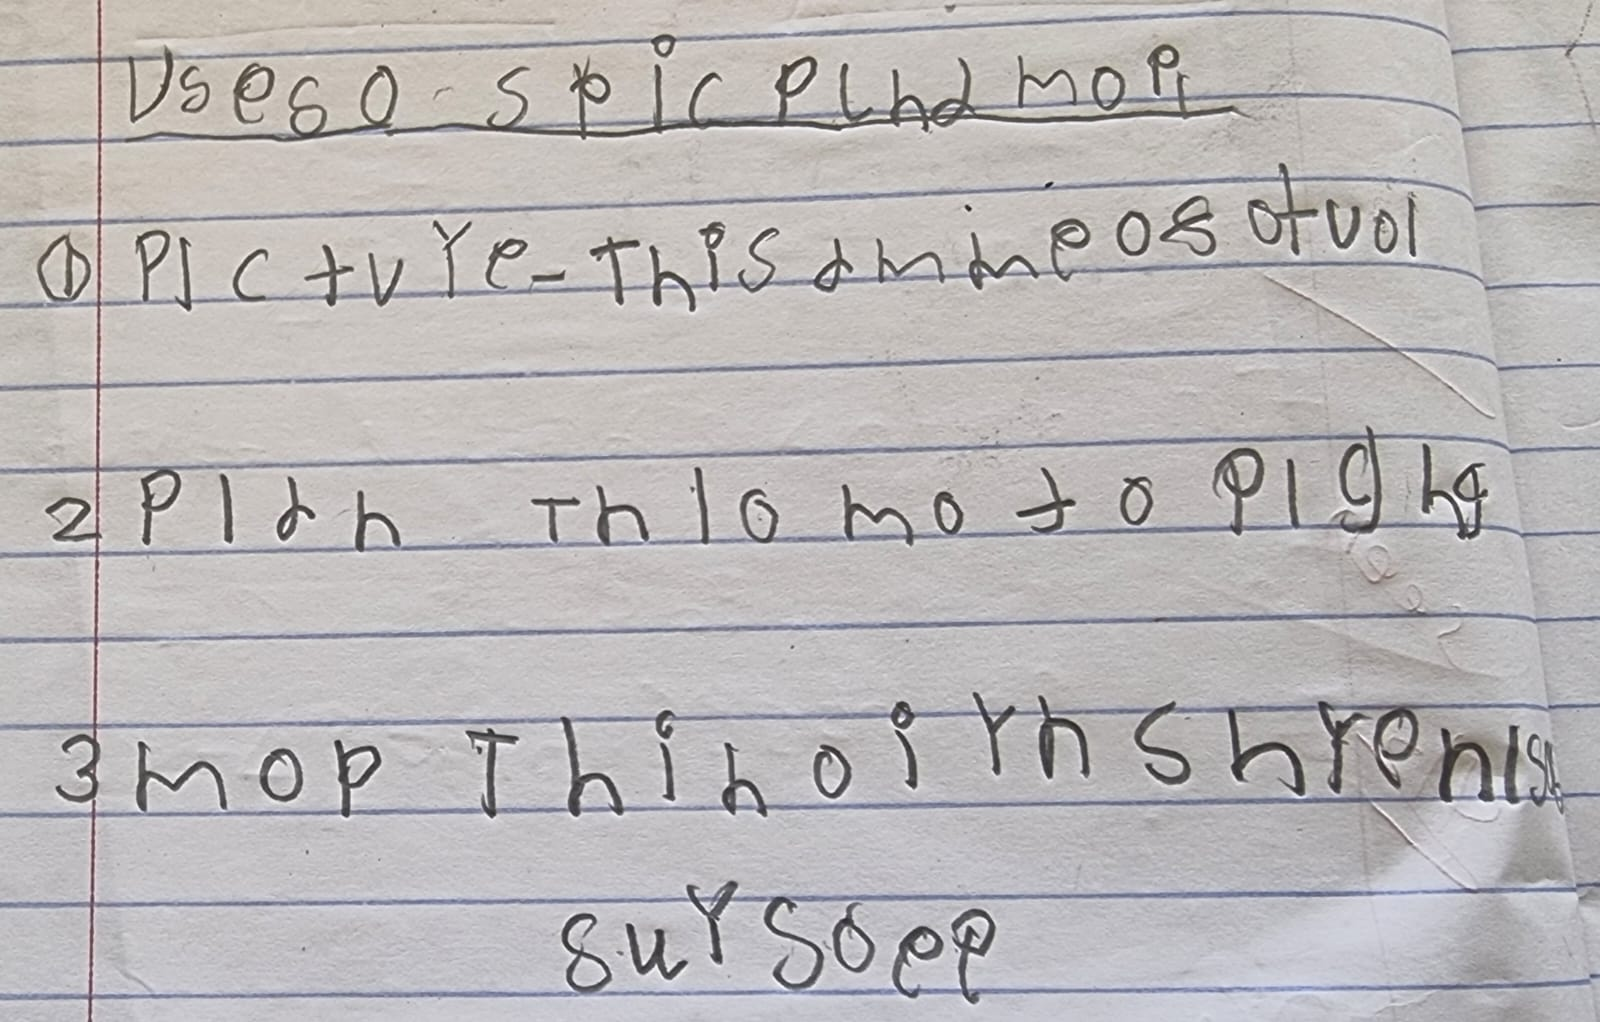 Uses o - spic Pland mop
① Picture - This a mine os otuol
2 Plan Thlo mo to Plg hg
3 mop Thin oirn shren
sur soee